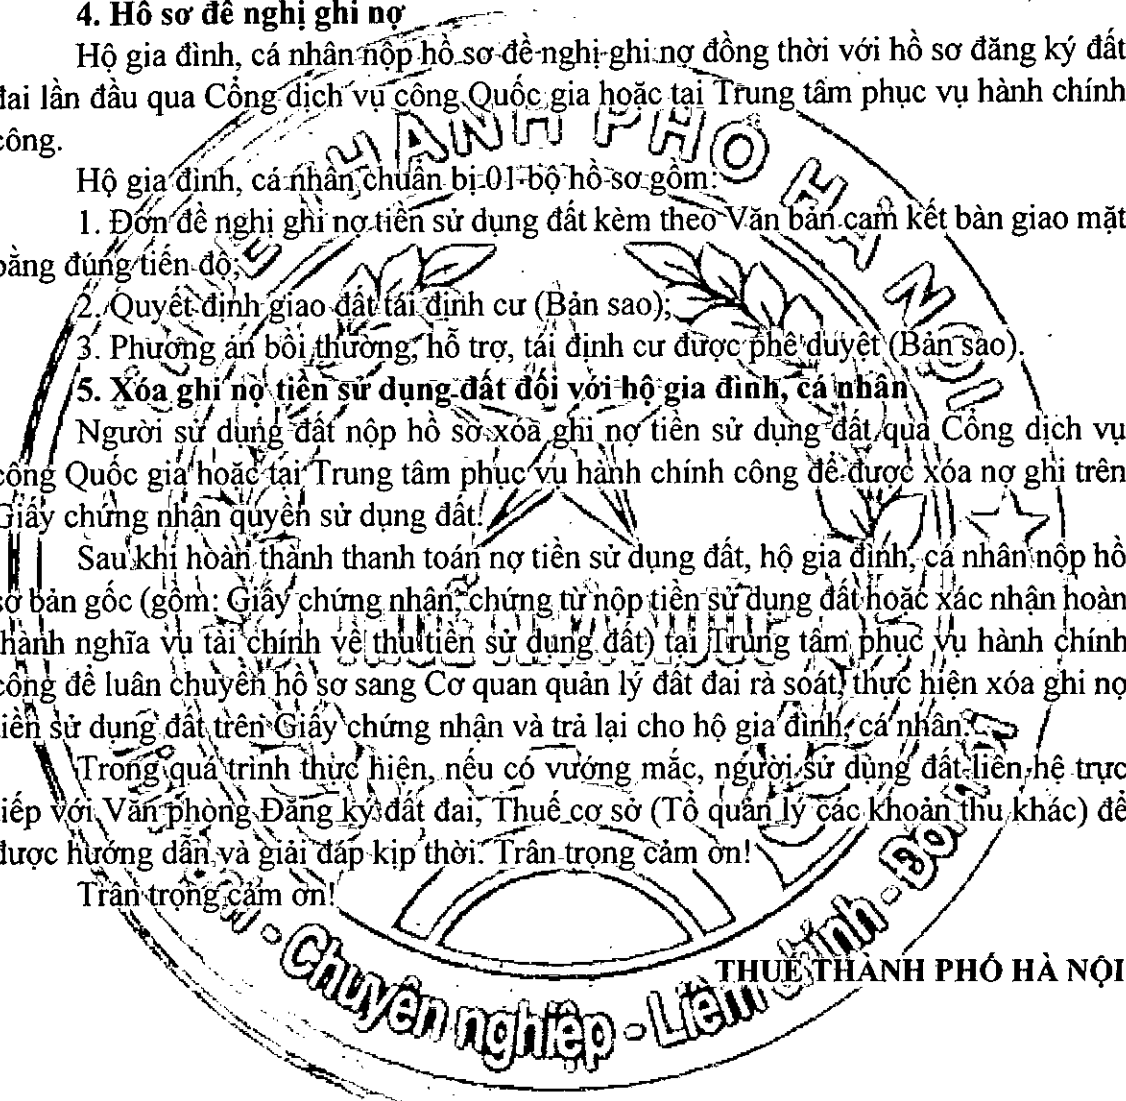 4. Hồ sơ đề nghị ghi nợ
Hộ gia đình, cá nhân nộp hồ sơ đề nghị ghi nợ đồng thời với hồ sơ đăng ký đất
đai lần đầu qua Cổng dịch vụ công Quốc gia hoặc tại Trung tâm phục vụ hành chính
công.
Hộ gia đình, cá nhân chuẩn bị 01 bộ hồ sơ gồm:
1. Đơn đề nghị ghi nợ tiền sử dụng đất kèm theo Văn bản cam kết bàn giao mặt
bằng đúng tiến độ;
2. Quyết định giao đất tái định cư (Bản sao);
3. Phương án bồi thường, hỗ trợ, tái định cư được phê duyệt (Bản sao).
5. Xóa ghi nợ tiền sử dụng đất đối với hộ gia đình, cá nhân
Người sử dụng đất nộp hồ sơ xóa ghi nợ tiền sử dụng đất qua Cổng dịch vụ
công Quốc gia hoặc tại Trung tâm phục vụ hành chính công để được xóa nợ ghi trên
Giấy chứng nhận quyền sử dụng đất.
Sau khi hoàn thành thanh toán nợ tiền sử dụng đất, hộ gia đình, cá nhân nộp hồ
sơ bản gốc (gồm: Giấy chứng nhận, chứng từ nộp tiền sử dụng đất hoặc xác nhận hoàn
thành nghĩa vụ tài chính về thu tiền sử dụng đất) tại Trung tâm phục vụ hành chính
công để luân chuyển hồ sơ sang Cơ quan quản lý đất đai rà soát, thực hiện xóa ghi nợ
tiền sử dụng đất trên Giấy chứng nhận và trả lại cho hộ gia đình, cá nhân.
Trong quá trình thực hiện, nếu có vướng mắc, người sử dùng đất liên hệ trực
tiếp với Văn phòng Đăng ký đất đai, Thuế cơ sở (Tổ quản lý các khoản thu khác) để
được hướng dẫn và giải đáp kịp thời. Trân trọng cảm ơn!
Trân trọng cảm ơn!
THUẾ THÀNH PHỐ HÀ NỘI
THÀNH PHỐ HÀ NỘI
- Chuyên nghiệp - Liêm chính -